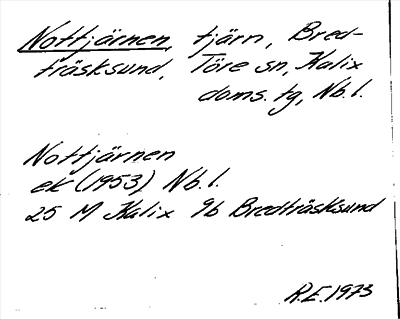 Nottjärnen, tjärn, Bred-
träsksund, Töre sn, Kalix
doms. tg, Nb.l.
Nottjärnen
ek (1953) Nb.l.
25 M Kalix 9b Bredträsksund
R.E. 1973